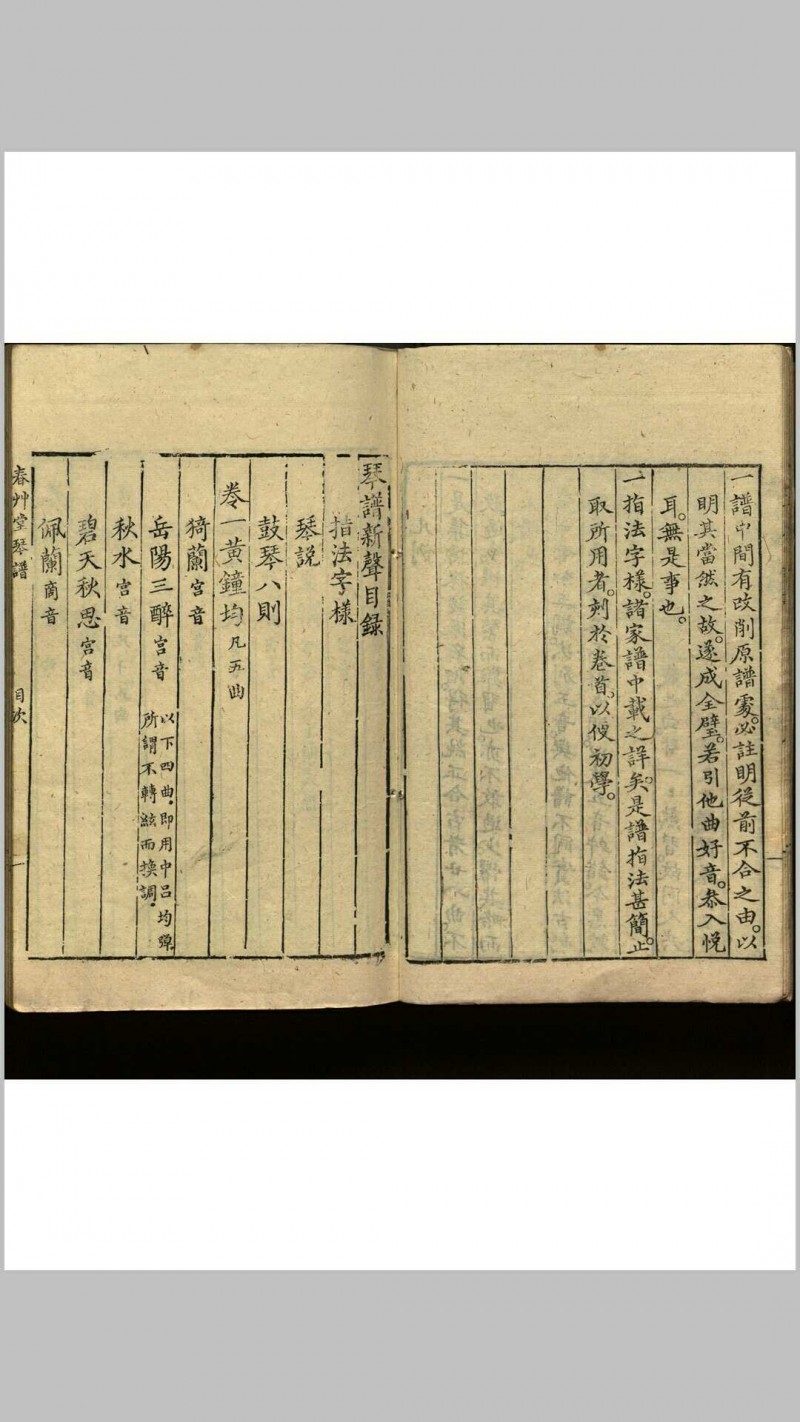 一譜中間有改削原譜處。必註明從前不合之由。以
明其當然之故。遂成全璧。若引他曲好音。叅入悅
耳。無是事也。
一指法字樣。諸家譜中載之詳矣。是譜指法甚簡。止
取所用者。刻於卷首。以便初學。
琴譜新聲目錄
指法字樣
琴說
鼓琴八則
卷一黃鐘均凡五曲
猗蘭宮音
岳陽三醉宮音
以下四曲。即用中呂均彈
所謂不轉絃而換調。
秋水宮音
碧天秋思宮音
佩蘭商音
春艸堂琴譜
目次
一